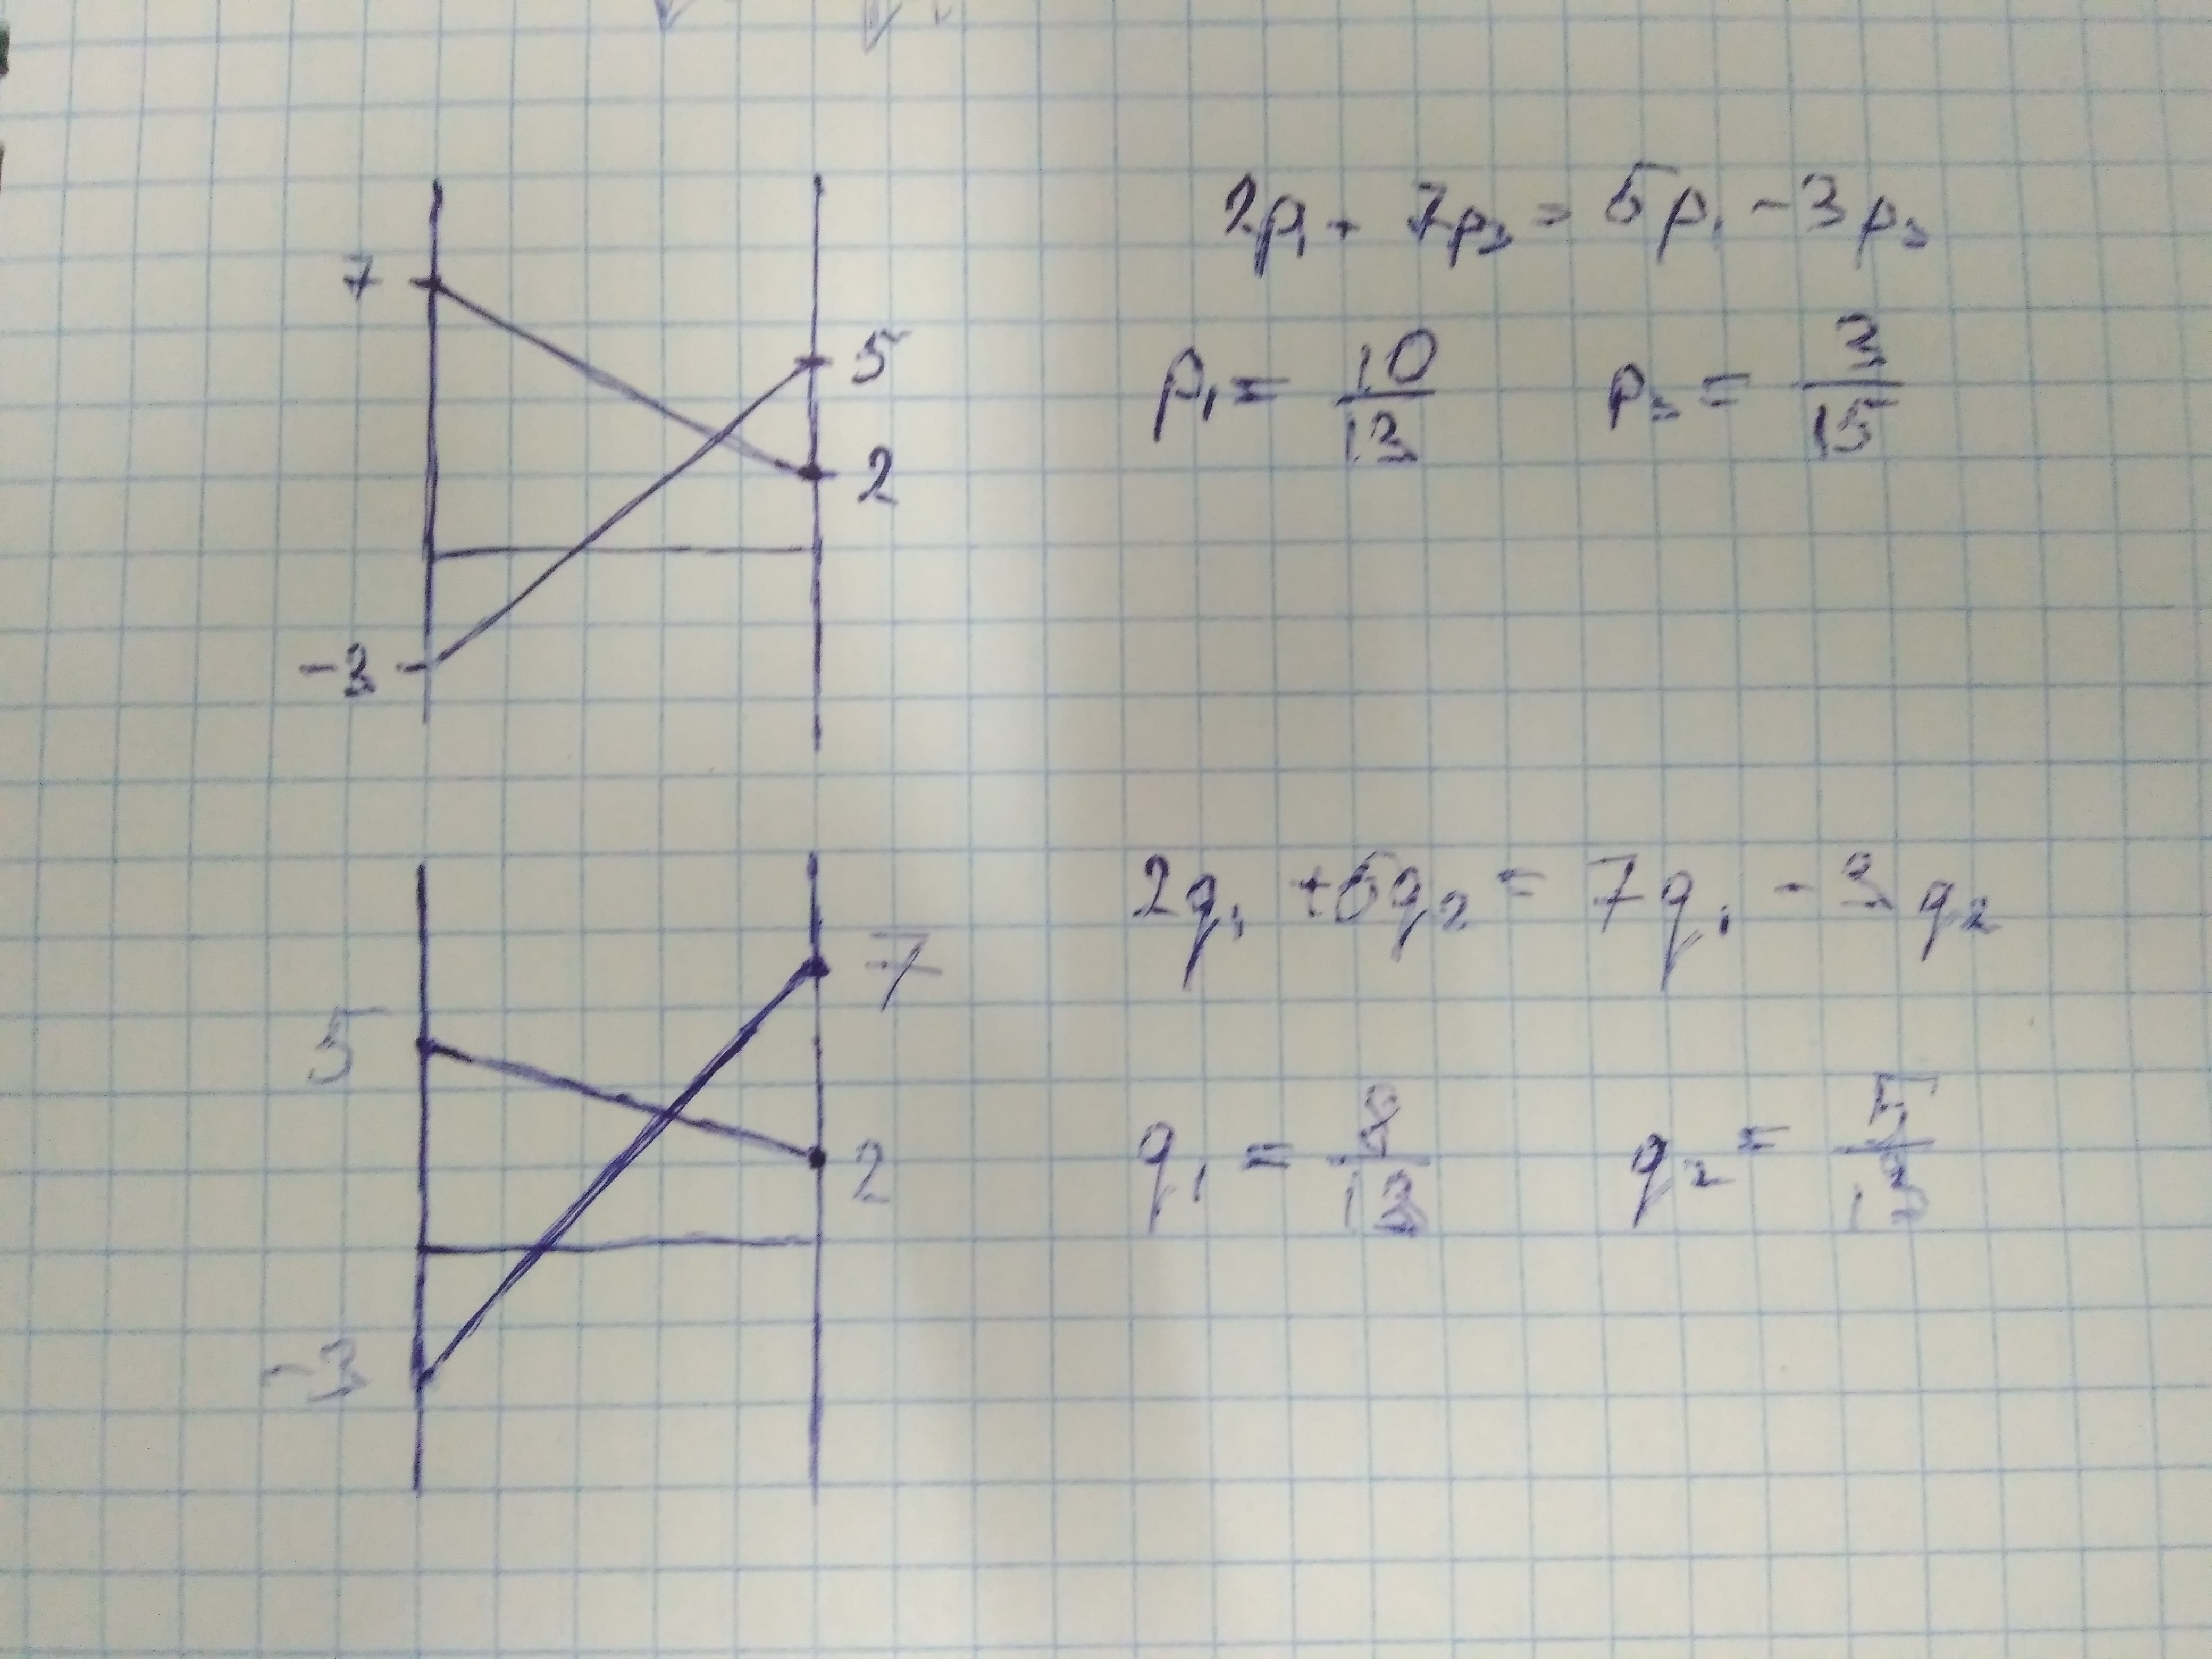 7
5
2
-3
2p₁ + 7p₂ = 5p₁ - 3p₂
p₁ = 10/13 p₂ = 3/15
5
7
2
-3
2q₁ + 5q₂ = 7q₁ - 3q₂
q₁ = 8/13 q₂ = 5/13